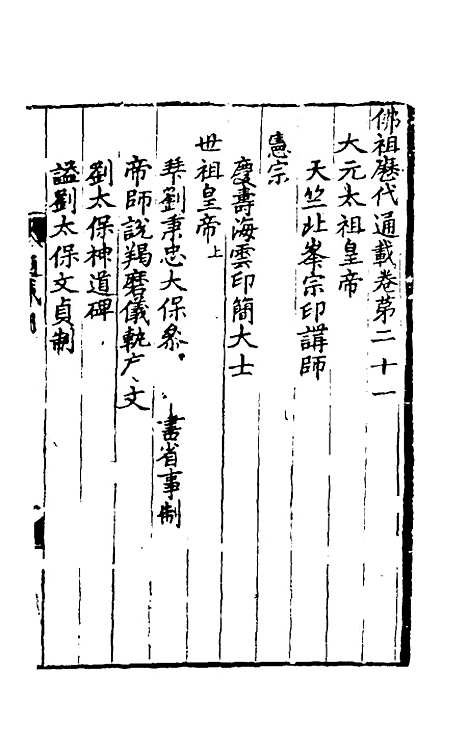 佛祖歷代通載卷第二十一
大元太祖皇帝
天竺北峯宗印講師
憲宗
慶壽海雲印簡大士
世祖皇帝上
拜劉秉忠太保叅 書省事制
帝師說羯磨儀軌序文
劉太保神道碑
謚劉太保文貞制